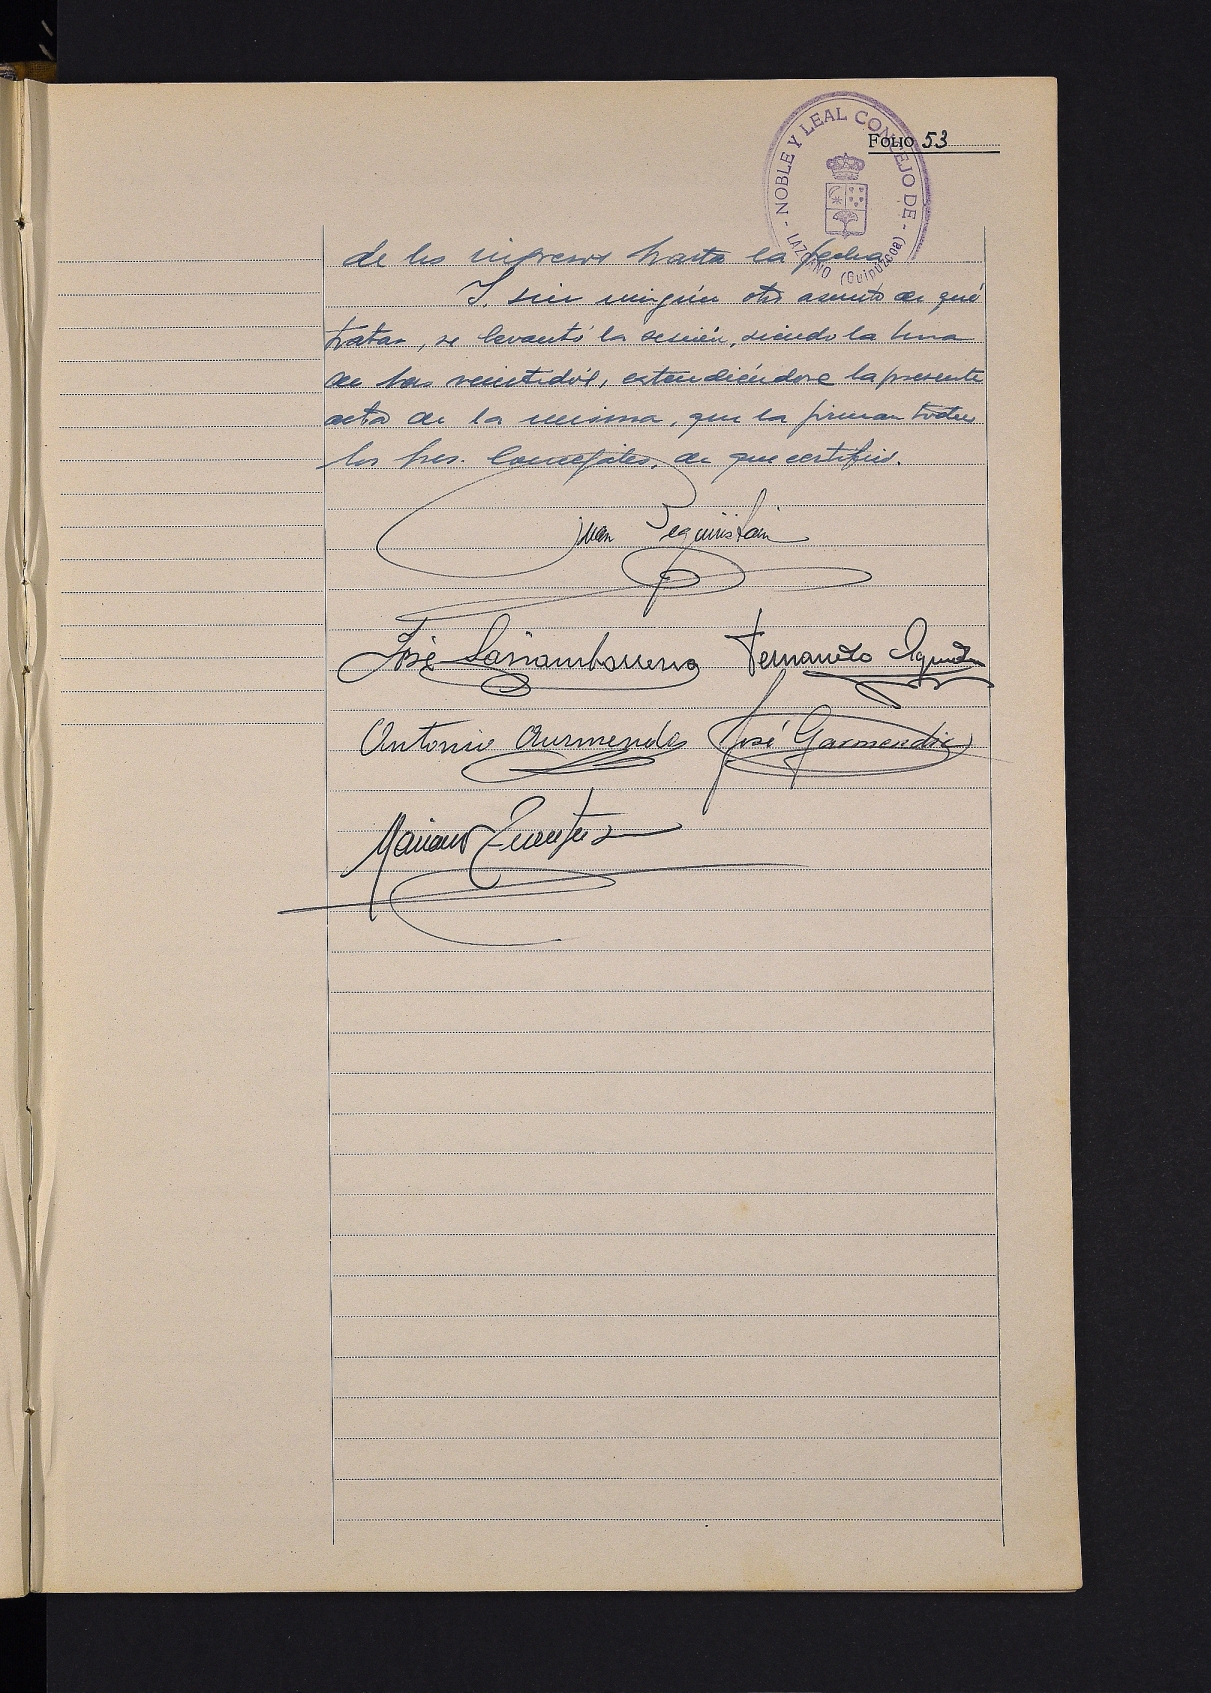 FOLIO 53
NOBLE Y LEAL CONCEJO DE
LAZCANO (Guipúzcoa)
de los ingresos hasta la fecha.
Y, sin ningún otro asunto de qué
tratar, se levantó la sesión, siendo la hora
de las veintidós, extendiéndose la presente
acta de la misma, que la firman todos
los Sres. Concejales, de que certifico.
Juan Yeguiristain
José Garmendia
Antonio Aurmendi
José
Fernando
Mariano